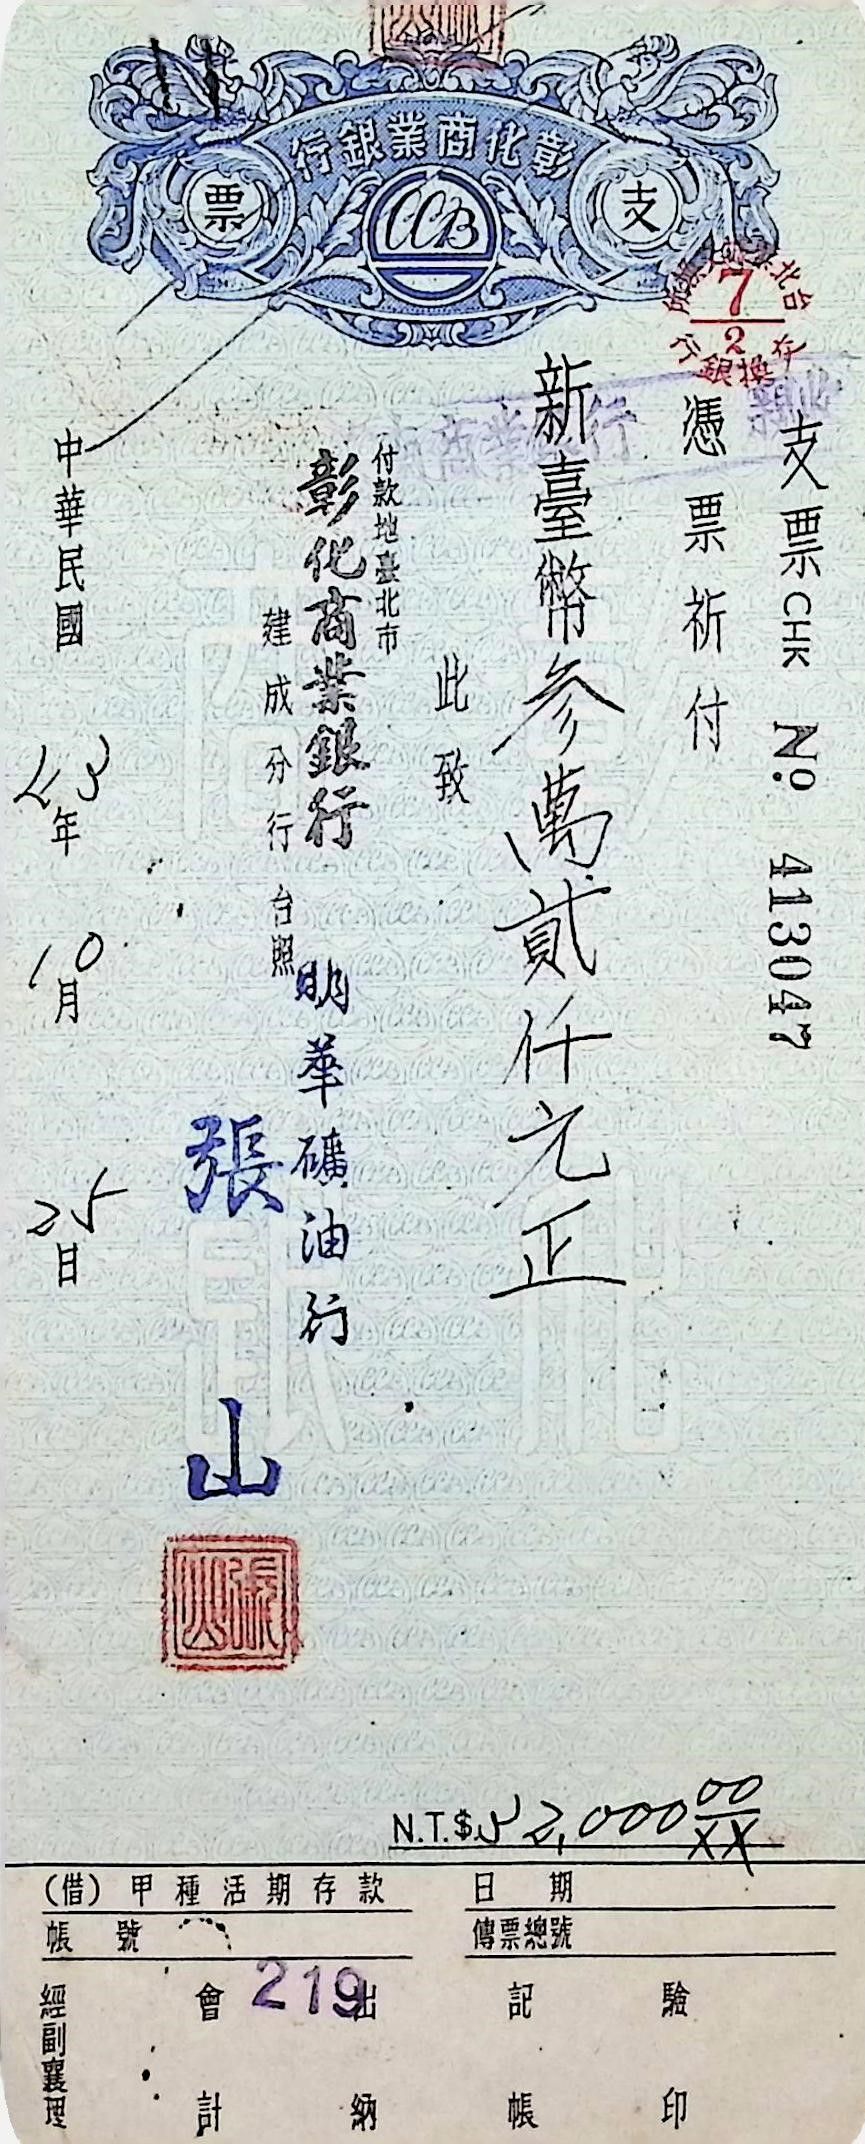 彰化商業銀行
支票
CCB
7
2
支票 CHK No. 413047
憑票祈付
新臺幣參萬貳仟元正
此致
付款地臺北市
彰化商業銀行
建成分行 台照
明華礦油行
張山
中華民國
年 10月 25日
張山
N.T.$ 32,000 00/XX
(借) 甲種活期存款
日期
帳號
傳票總號
219
經副襄理
會計
出納
記帳
驗印